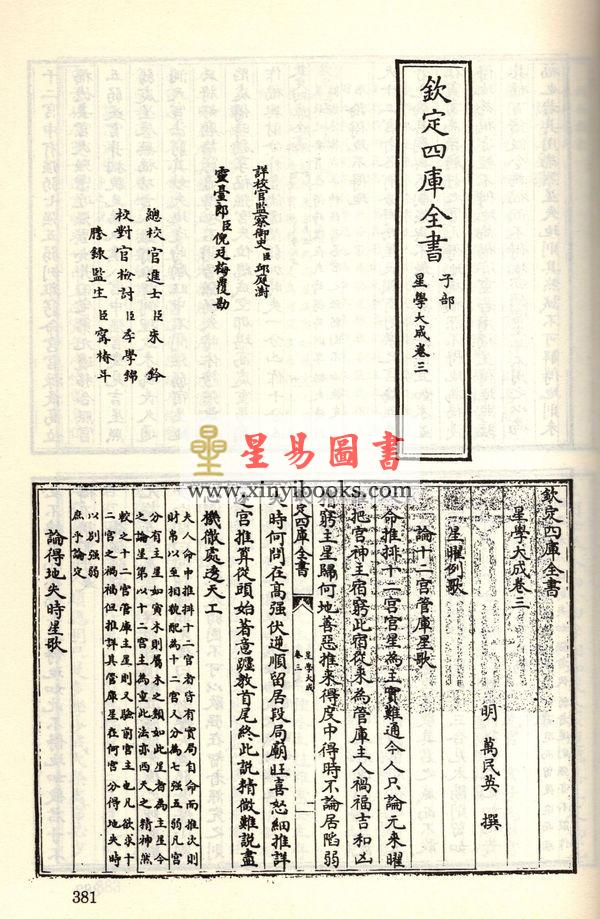 欽定四庫全書
子部
星學大成卷三
詳校官監察御史臣邱庭澍
靈臺郎臣倪廷梅覆勘
總校官進士臣朱鈐
校對官檢討臣李學錦
謄錄監生臣甯椿年
星易圖書
www.xinyibooks.com
欽定四庫全書
星學大成卷三
明 萬民英 撰
星曜例歌
論十二宮管庫星歌
命推排十二宮宮星為主實難通今人只論元來曜
把宮神主宿窮此宿從來為管庫主人禍福吉和凶
窮主星歸何地善惡推來得度中得時不論居陷弱
定四庫全書
星學大成
卷三
時何問在高强伏逆順留居段局廟旺喜怒細推詳
宮推算從頭始著意躔教首尾終此説精微難説盡
機微處透天工
夫人命中推排十二宮者皆有實局自命而推次則
財帛以至相貌配為十二宮人分為七强五弱凡宮
分有主星如寅木則屬木之類如此星者為主星今
之論星第以十二宮主為重此法亦西天之精神然
較之十二宮管庫主星則又驗前宮主也凡欲求十
二宮之禍福但推詳其管庫星在何宮分得地失時
以别强弱
庶乎論定
論得地失時星歌
381